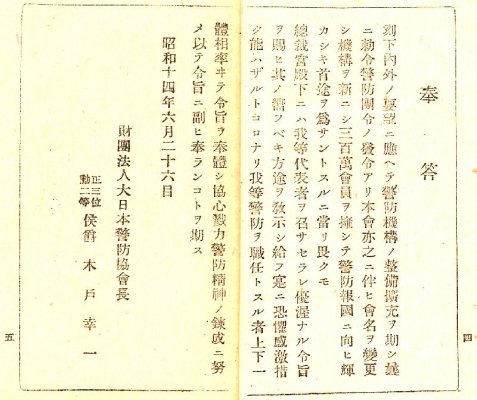 奉答
刻下內外ノ要望ニ應ヘテ警防機構ノ整備擴充ヲ期シ曩
ニ勅令警防團令ノ發令アリ本會亦之ニ伴ヒ會名ヲ變更
シ機構ヲ新ニシ三百萬會員ヲ擁シテ警防報國ニ向ヒ輝
カシキ首途ヲ爲サントスルニ當リ畏クモ
總裁宮殿下ニハ我等代表者ヲ召サセラレ優渥ナル令旨
ヲ賜ヒ其ノ嚮フベキ方途ヲ敎示シ給フ寔ニ恐懼感激措
ク能ハザルトコロナリ我等警防ヲ職任トスル者上下一
四
體相率ヰテ令旨ヲ奉體シ協心戮力警防精神ノ錬成ニ努
メ以テ令旨ニ副ヒ奉ランコトヲ期ス
昭和十四年六月二十六日
財團法人大日本警防協會長
正三位
勳二等
侯爵 木戶幸一
五